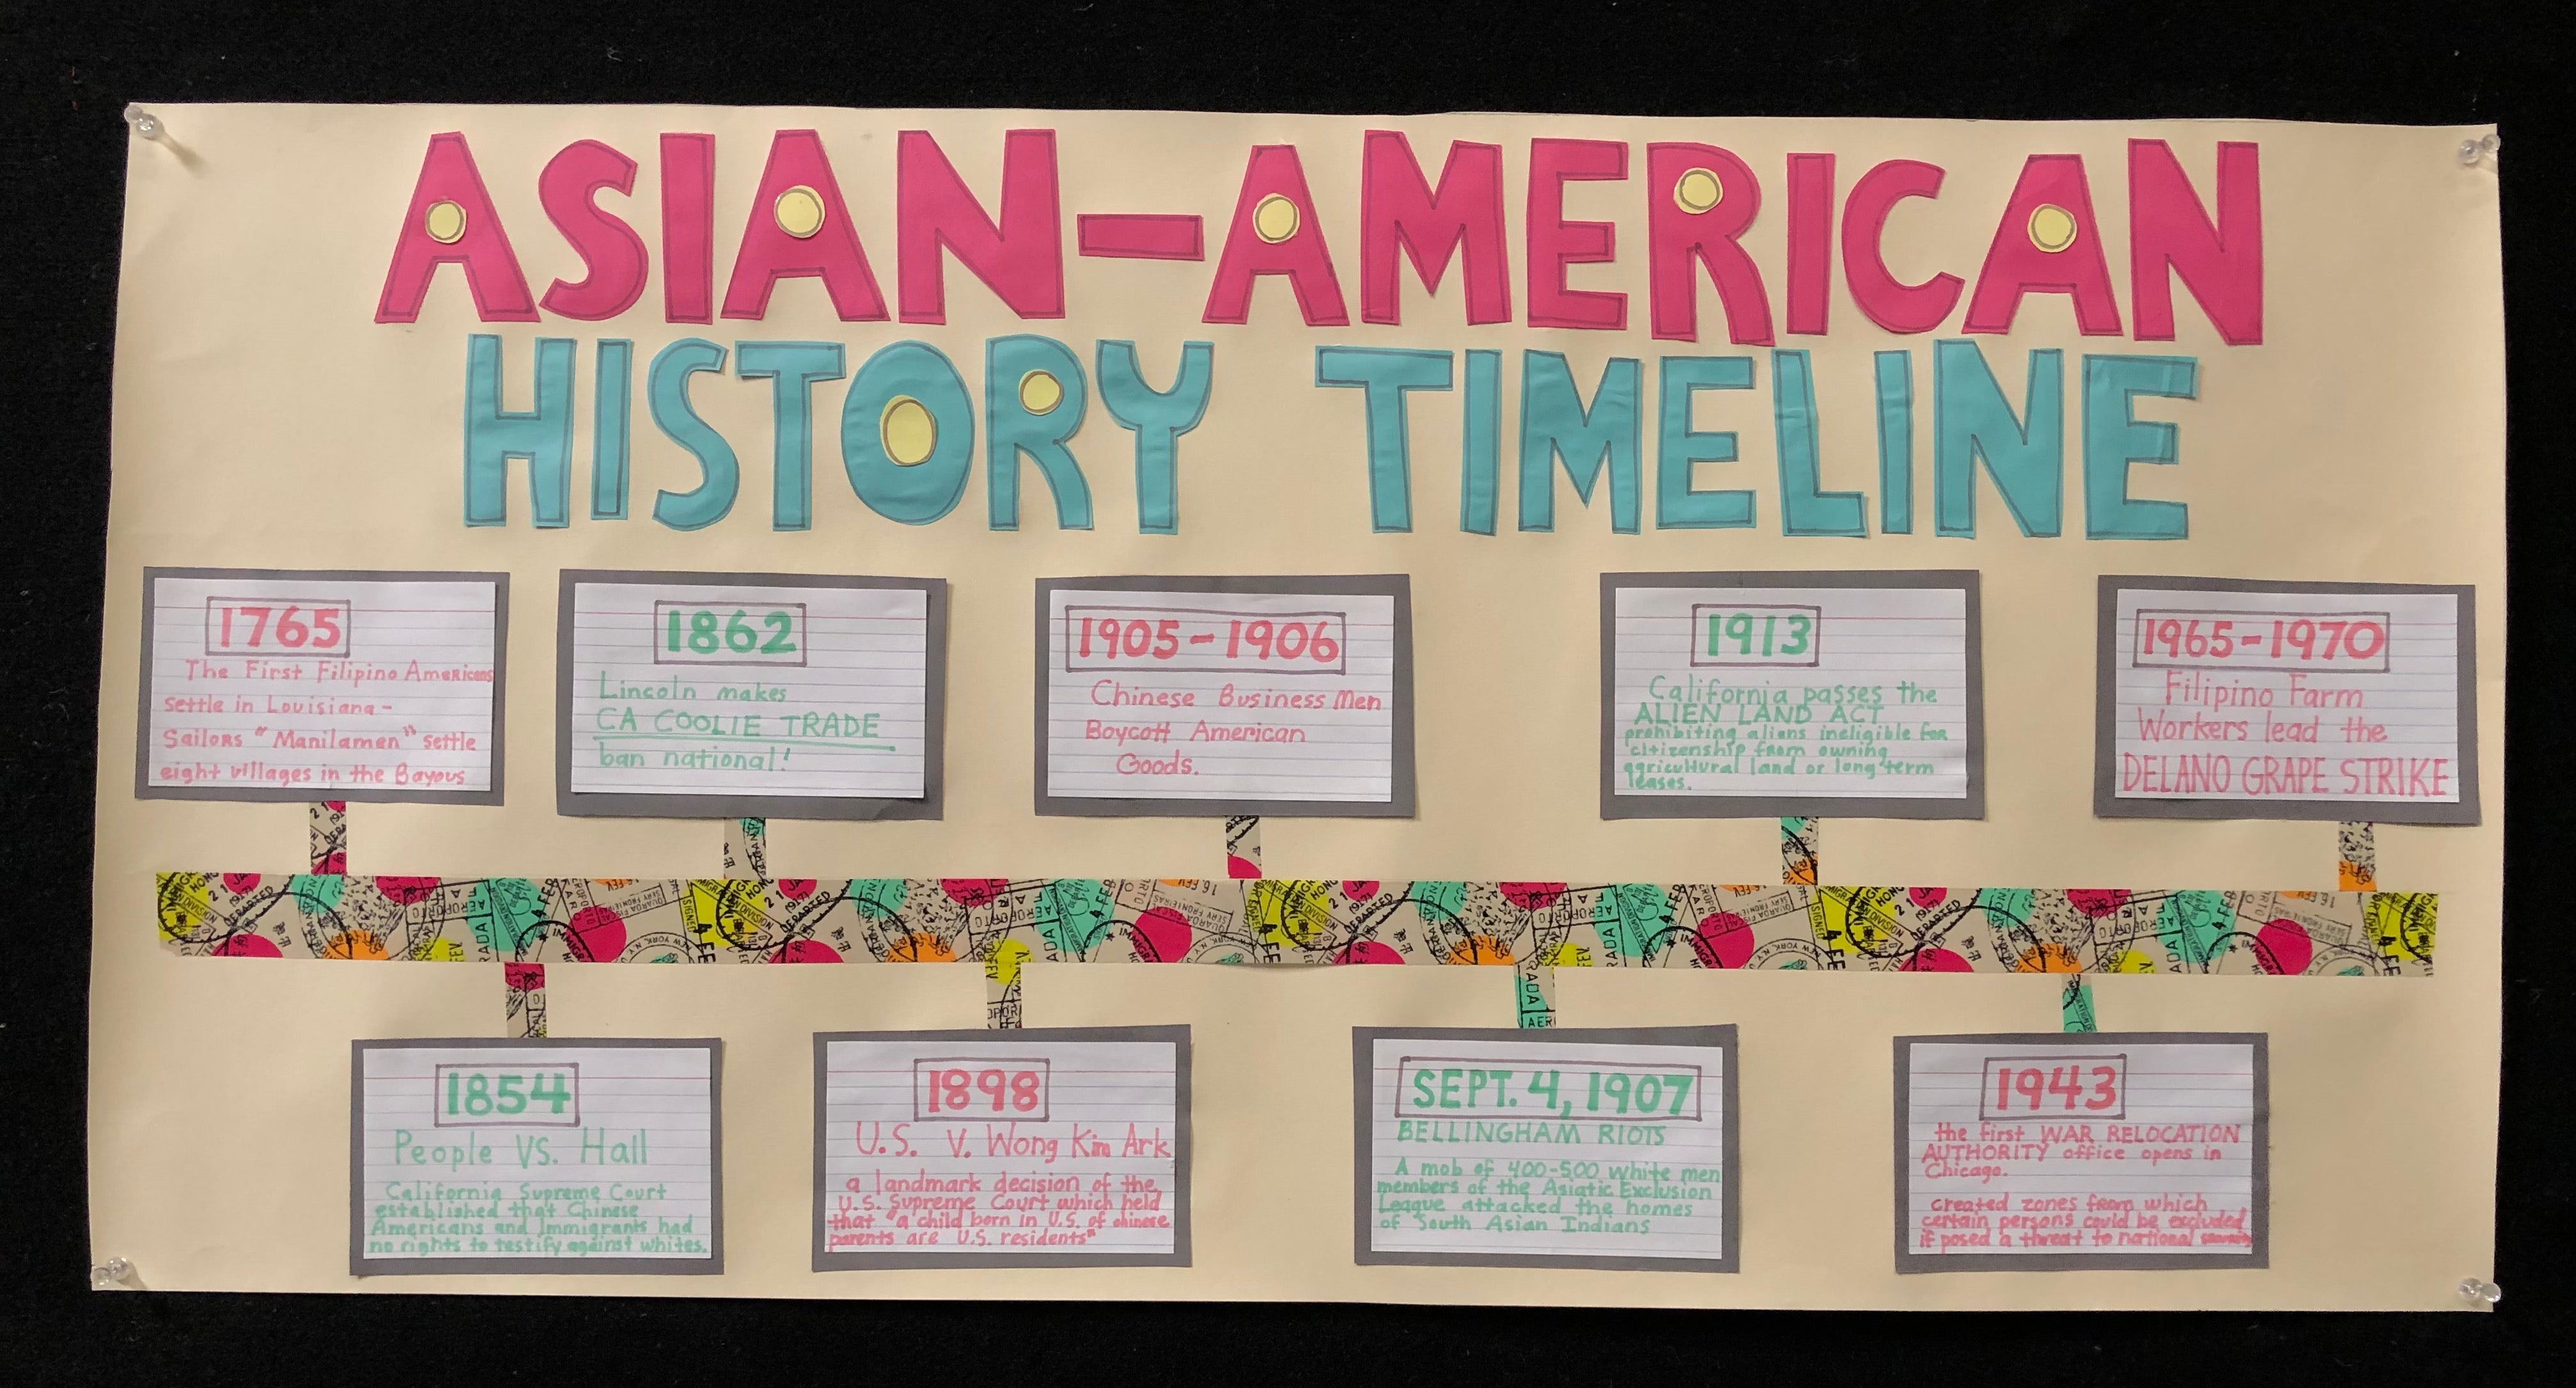 ASIAN-AMERICAN
HISTORY TIMELINE
1765
The First Filipino Americans
settle in Louisiana-
Sailors "Manilamen" settle
eight villages in the Bayous
1862
Lincoln makes
CA COOLIE TRADE
ban national!
1905-1906
Chinese Business Men
Boycott American
Goods.
1913
California passes the
ALIEN LAND ACT
prohibiting aliens ineligible for
citizenship from owning
agricultural land or long term
leases.
1965-1970
Filipino Farm
Workers lead the
DELANO GRAPE STRIKE
1854
People VS. Hall
California Supreme Court
established that Chinese
Americans and Immigrants had
no rights to testify against whites.
1898
U.S. V. Wong Kim Ark
a landmark decision of the
U.S. Supreme Court which held
that "a child born in U.S. of chinese
parents are U.S. residents"
SEPT. 4, 1907
BELLINGHAM RIOTS
A mob of 400-500 white men
members of the Asiatic Exclusion
League attacked the homes
of South Asian Indians
1943
the first WAR RELOCATION
AUTHORITY office opens in
Chicago.
created zones from which
certain persons could be excluded
if posed a threat to national